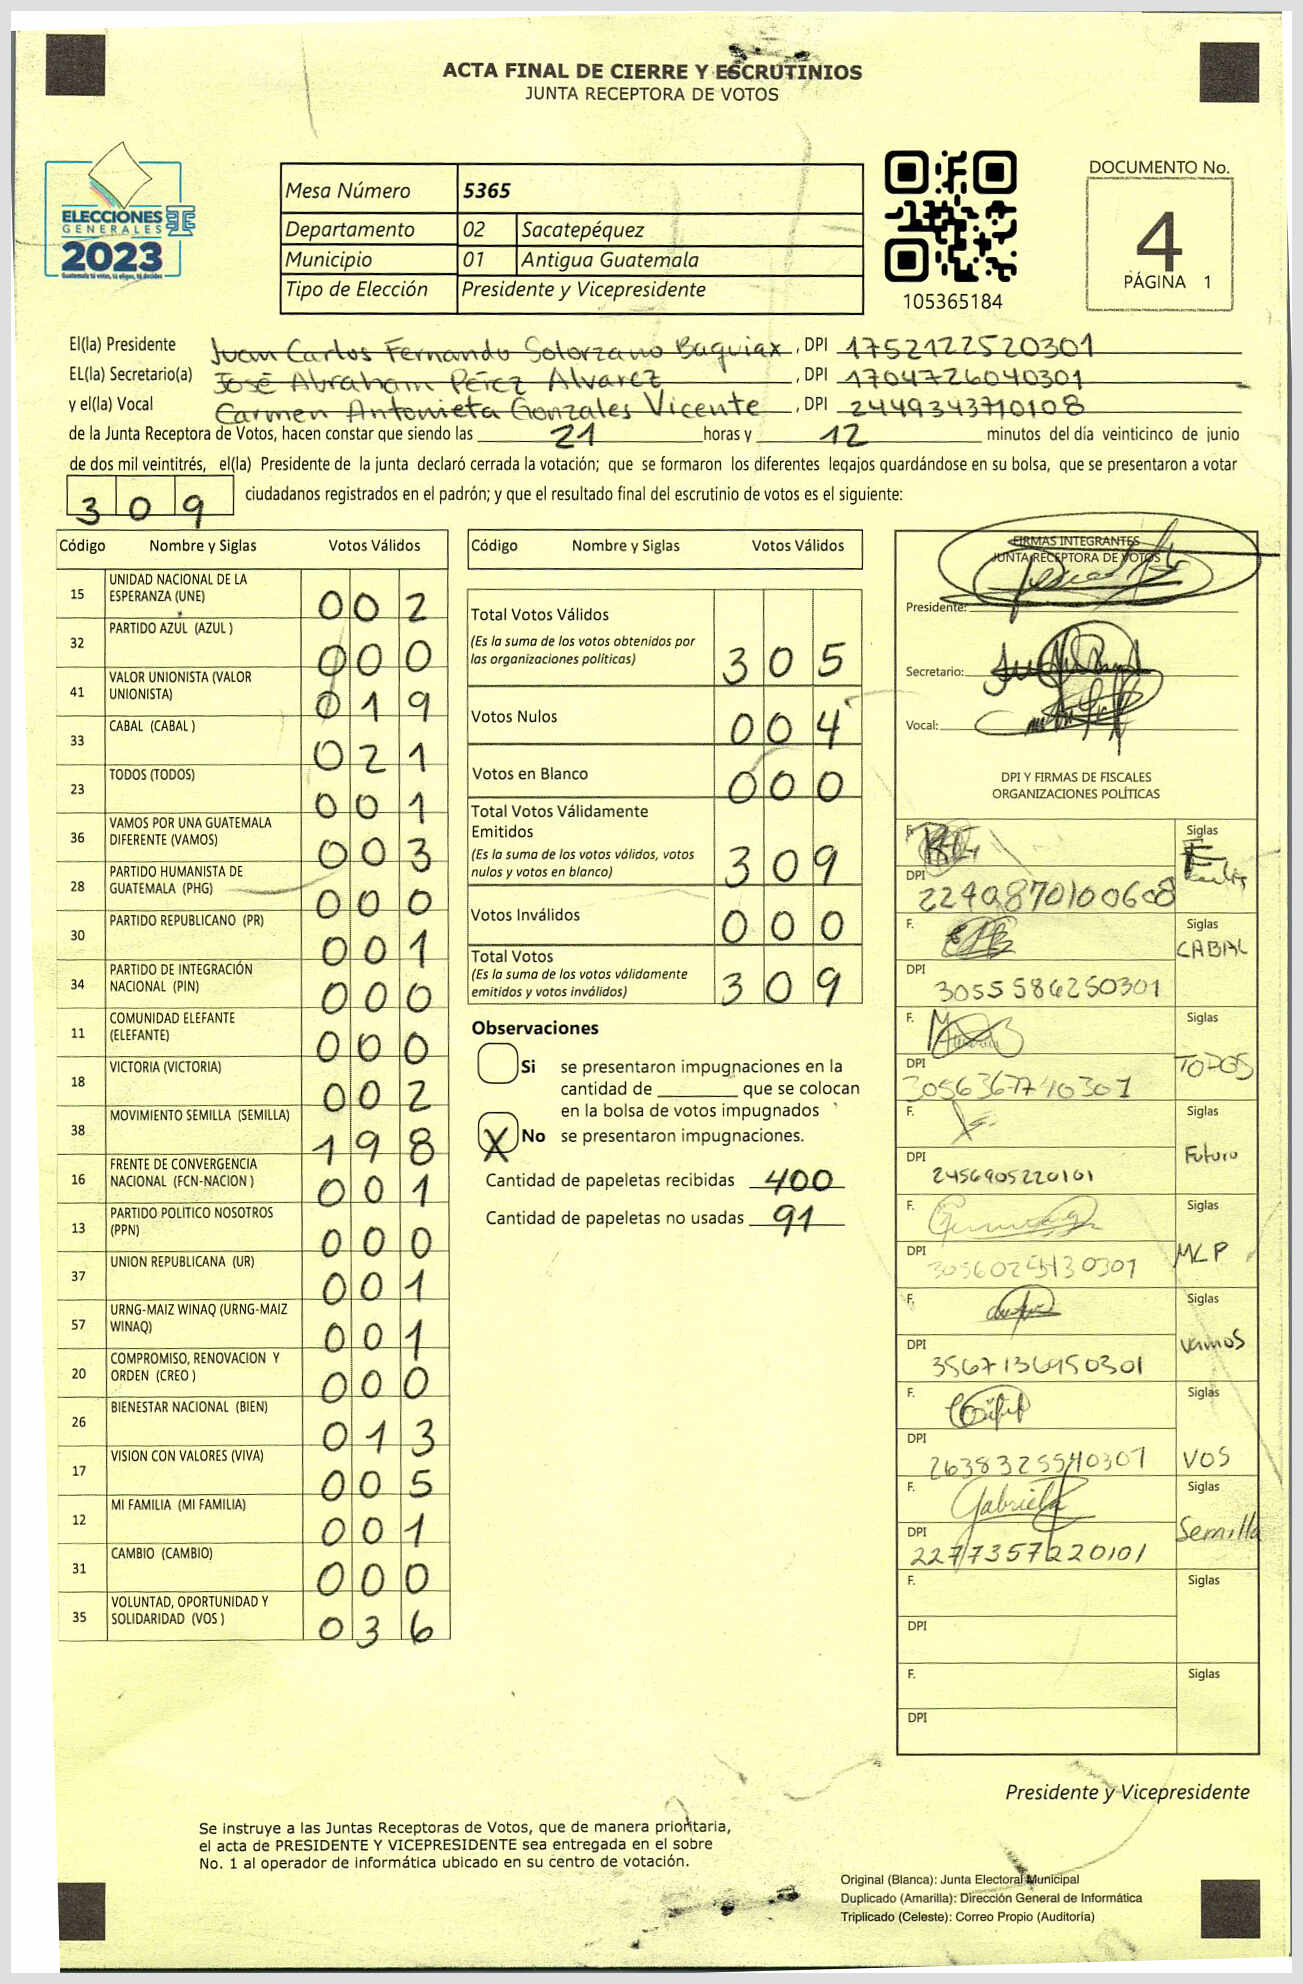 ACTA FINAL DE CIERRE Y ESCRUTINIOS
JUNTA RECEPTORA DE VOTOS
ELECCIONES
GENERALES
2023
Guatemala tú votas, tú eliges, tú decides
Mesa Número 5365
Departamento 02 Sacatepéquez
Municipio 01 Antigua Guatemala
Tipo de Elección Presidente y Vicepresidente
105365184
DOCUMENTO No.
4
PÁGINA 1
El(la) Presidente Juan Carlos Fernando Solorzano Baquiax, DPI 1752122520301
EL(la) Secretario(a) José Abraham Pérez Alvarez, DPI 1704726040301
y el(la) Vocal Carmen Antonieta Gonzales Vicente, DPI 2449343710108
de la Junta Receptora de Votos, hacen constar que siendo las 21 horas y 12 minutos del día veinticinco de junio
de dos mil veintitrés, el(la) Presidente de la junta declaró cerrada la votación; que se formaron los diferentes legajos guardándose en su bolsa, que se presentaron a votar
309 ciudadanos registrados en el padrón; y que el resultado final del escrutinio de votos es el siguiente:
Código Nombre y Siglas Votos Válidos
15 UNIDAD NACIONAL DE LA
ESPERANZA (UNE) 002
32 PARTIDO AZUL (AZUL ) 000
41 VALOR UNIONISTA (VALOR
UNIONISTA) 019
33 CABAL (CABAL ) 021
23 TODOS (TODOS) 001
36 VAMOS POR UNA GUATEMALA
DIFERENTE (VAMOS) 003
28 PARTIDO HUMANISTA DE
GUATEMALA (PHG) 000
30 PARTIDO REPUBLICANO (PR) 001
34 PARTIDO DE INTEGRACIÓN
NACIONAL (PIN) 000
11 COMUNIDAD ELEFANTE
(ELEFANTE) 000
18 VICTORIA (VICTORIA) 002
38 MOVIMIENTO SEMILLA (SEMILLA) 198
16 FRENTE DE CONVERGENCIA
NACIONAL (FCN-NACION ) 001
13 PARTIDO POLITICO NOSOTROS
(PPN) 000
37 UNION REPUBLICANA (UR) 001
57 URNG-MAIZ WINAQ (URNG-MAIZ
WINAQ) 001
20 COMPROMISO, RENOVACION Y
ORDEN (CREO ) 000
26 BIENESTAR NACIONAL (BIEN) 013
17 VISION CON VALORES (VIVA) 005
12 MI FAMILIA (MI FAMILIA) 001
31 CAMBIO (CAMBIO) 000
35 VOLUNTAD, OPORTUNIDAD Y
SOLIDARIDAD (VOS ) 036
Código Nombre y Siglas Votos Válidos
Total Votos Válidos
(Es la suma de los votos obtenidos por
las organizaciones políticas) 305
Votos Nulos 004
Votos en Blanco 000
Total Votos Válidamente
Emitidos
(Es la suma de los votos válidos, votos
nulos y votos en blanco) 309
Votos Inválidos 000
Total Votos
(Es la suma de los votos válidamente
emitidos y votos inválidos) 309
Observaciones
Si se presentaron impugnaciones en la
cantidad de ________ que se colocan
en la bolsa de votos impugnados
X No se presentaron impugnaciones.
Cantidad de papeletas recibidas 400
Cantidad de papeletas no usadas 91
FIRMAS INTEGRANTES
JUNTA RECEPTORA DE VOTOS
Presidente:
Secretario:
Vocal:
DPI Y FIRMAS DE FISCALES
ORGANIZACIONES POLÍTICAS
F. Siglas
DPI 2240870100608
F. Siglas CABAL
DPI 3055586250301
F. Siglas TODOS
DPI 3056367740301
F. Siglas Futuro
DPI 2456905220101
F. Siglas MLP
DPI
F. Siglas vamos
DPI 3567136950301
F. Siglas VOS
DPI 2638325540301
F. Gabriela Siglas Semilla
DPI 2277357220101
F. Siglas
DPI
F. Siglas
DPI
Presidente y Vicepresidente
Se instruye a las Juntas Receptoras de Votos, que de manera prioritaria,
el acta de PRESIDENTE Y VICEPRESIDENTE sea entregada en el sobre
No. 1 al operador de informática ubicado en su centro de votación.
Original (Blanca): Junta Electoral Municipal
Duplicado (Amarilla): Dirección General de Informática
Triplicado (Celeste): Correo Propio (Auditoría)